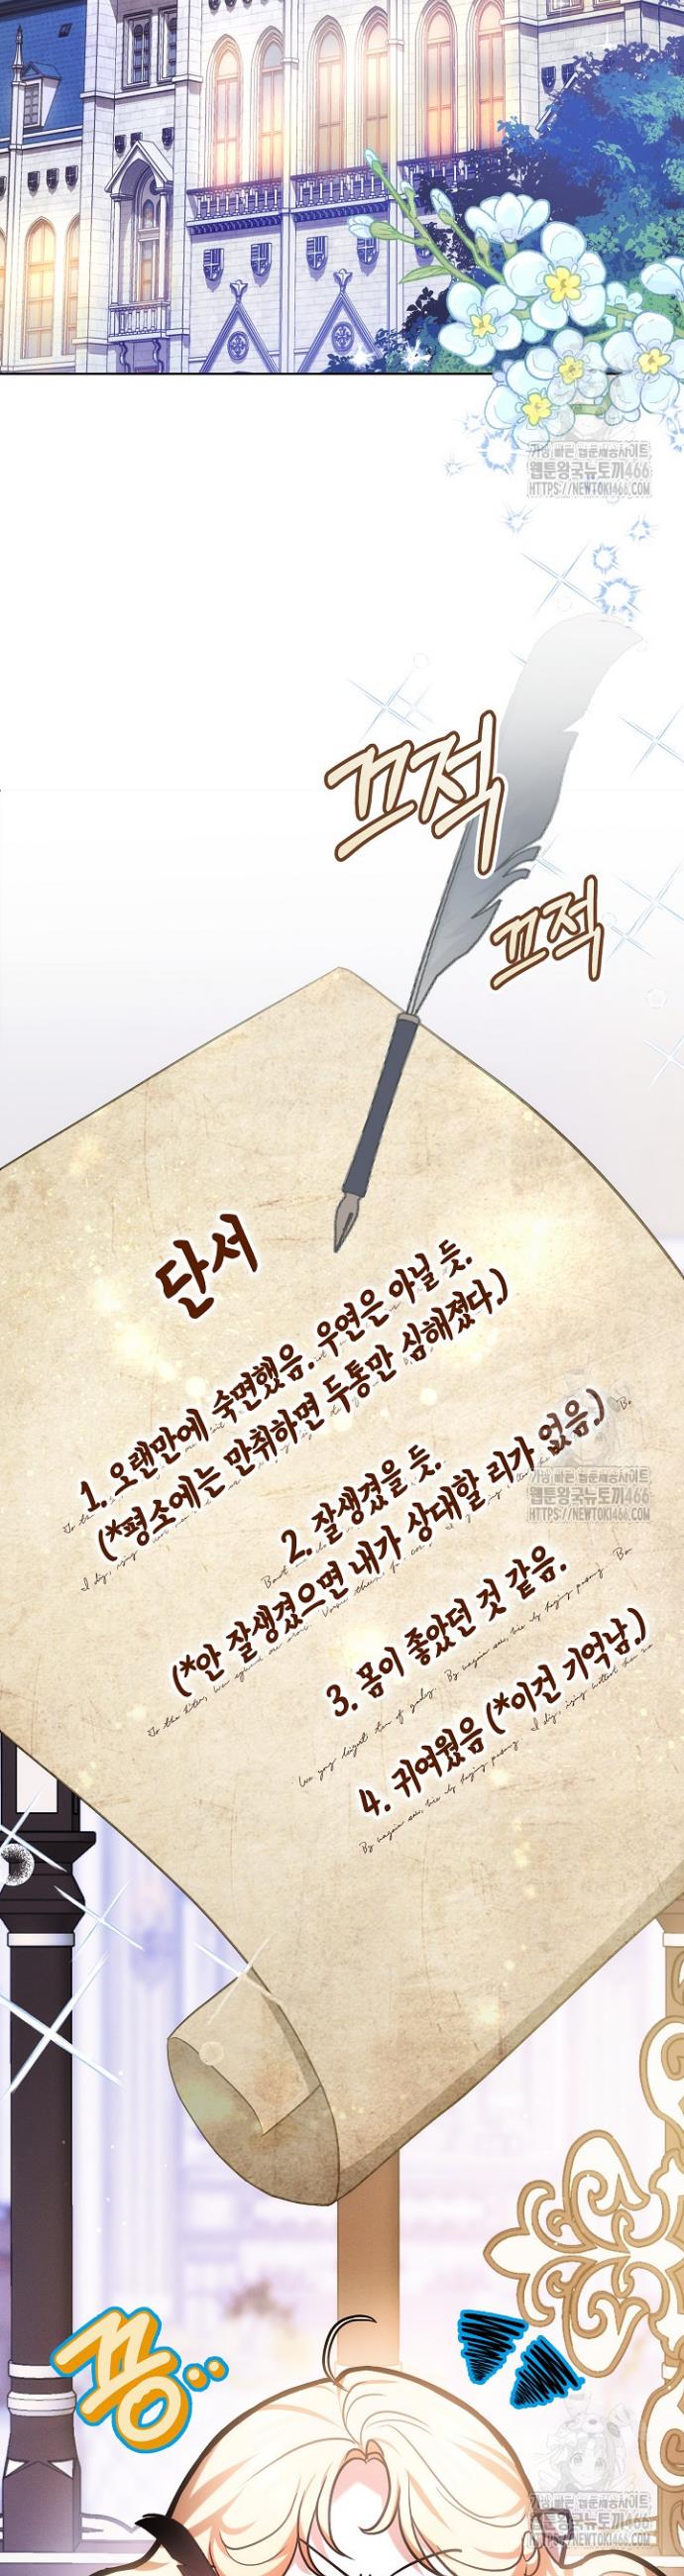 가장 빠른 웹툰제공사이트
웹툰왕국뉴토끼466
HTTPS://NEWTOKI466.COM
끄적
끄적
단서
1. 오랜만에 숙면했음. 우연은 아닐 듯.
(*평소에는 만취하면 두통만 심해졌다.)
2. 잘생겼을 듯.
(*안 잘생겼으면 내가 상대할 리가 없음.)
가장 빠른 웹툰제공사이트
웹툰왕국뉴토끼466
HTTPS://NEWTOKI466.COM
3. 몸이 좋았던 것 같음.
4. 귀여웠음 (*이건 기억남.)
끙..
가장 빠른 웹툰제공사이트
웹툰왕국뉴토끼466
HTTPS://NEWTOKI466.COM